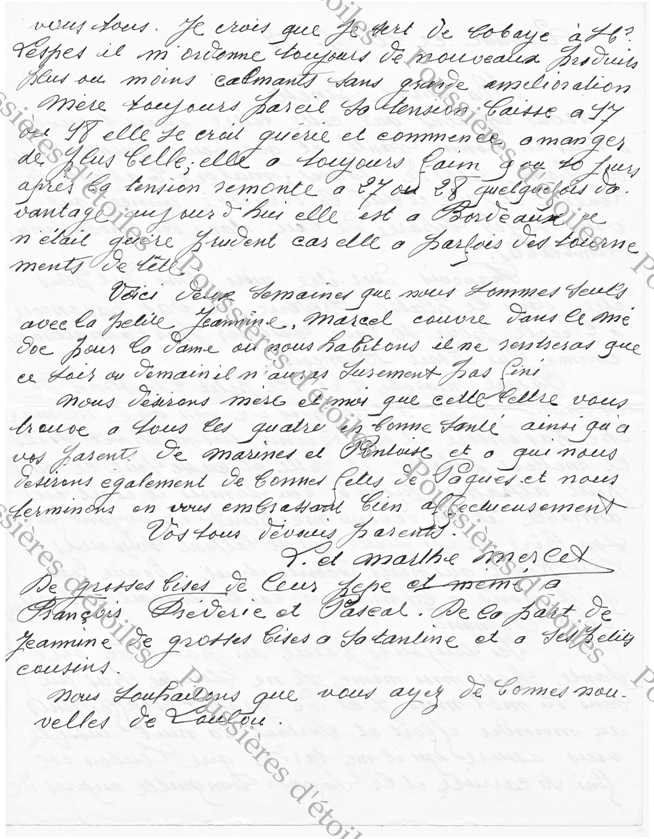 vous tous. Je crois que je sert de cobaye à Mr
Lespes il m'ordonne toujours de nouveaux produits
plus ou moins calmants sans grande amélioration
Mère toujours pareil sa tension baisse a 17
ou 18 elle se croit guérie et commence a manger
de plus belle; elle a toujours faim 9 ou 10 jours
après la tension remonte a 27 ou 28 quelquefois da-
vantage aujourd'hui elle est a Bordeaux ce
n'était guère prudent car elle a parfois des tourne
ments de tête.
Voici deux semaines que nous sommes seuls
avec la petite Jeannine, Marcel couvre dans le mé
doc pour la dame ou nous habitons il ne rentreras que
ce soir ou demain il n'auras surement pas fini
Nous désirons mère et moi que cette lettre vous
trouve a tous les quatre en bonne santé ainsi qu'a
vos parents de marines et Pontoise et a qui nous
desirons également de bonnes fêtes de Pâques et nous
terminons en vous embrassant bien affectueusement
Vos tous dévoués parents.
L. et Marthe Mercet
De grosses bises de leur pepe et meme a
François Fréderic et Pascal. De la part de
Jeannine de grosses bises a sa tantine et a ses petits
cousins.
Nous souhaitons que vous ayez de bonnes nou-
velles de Loulou.
Poussières d'étoiles